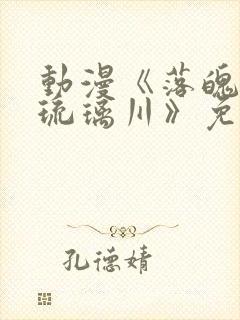 動漫《落魄
琉璃川》免
孔德婧